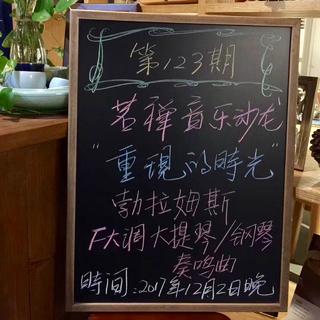 第123期
茗禅音乐沙龙
"重現的時光"
勃拉姆斯
F大调大提琴/钢琴
奏鸣曲
時间:2017年12月2日晚